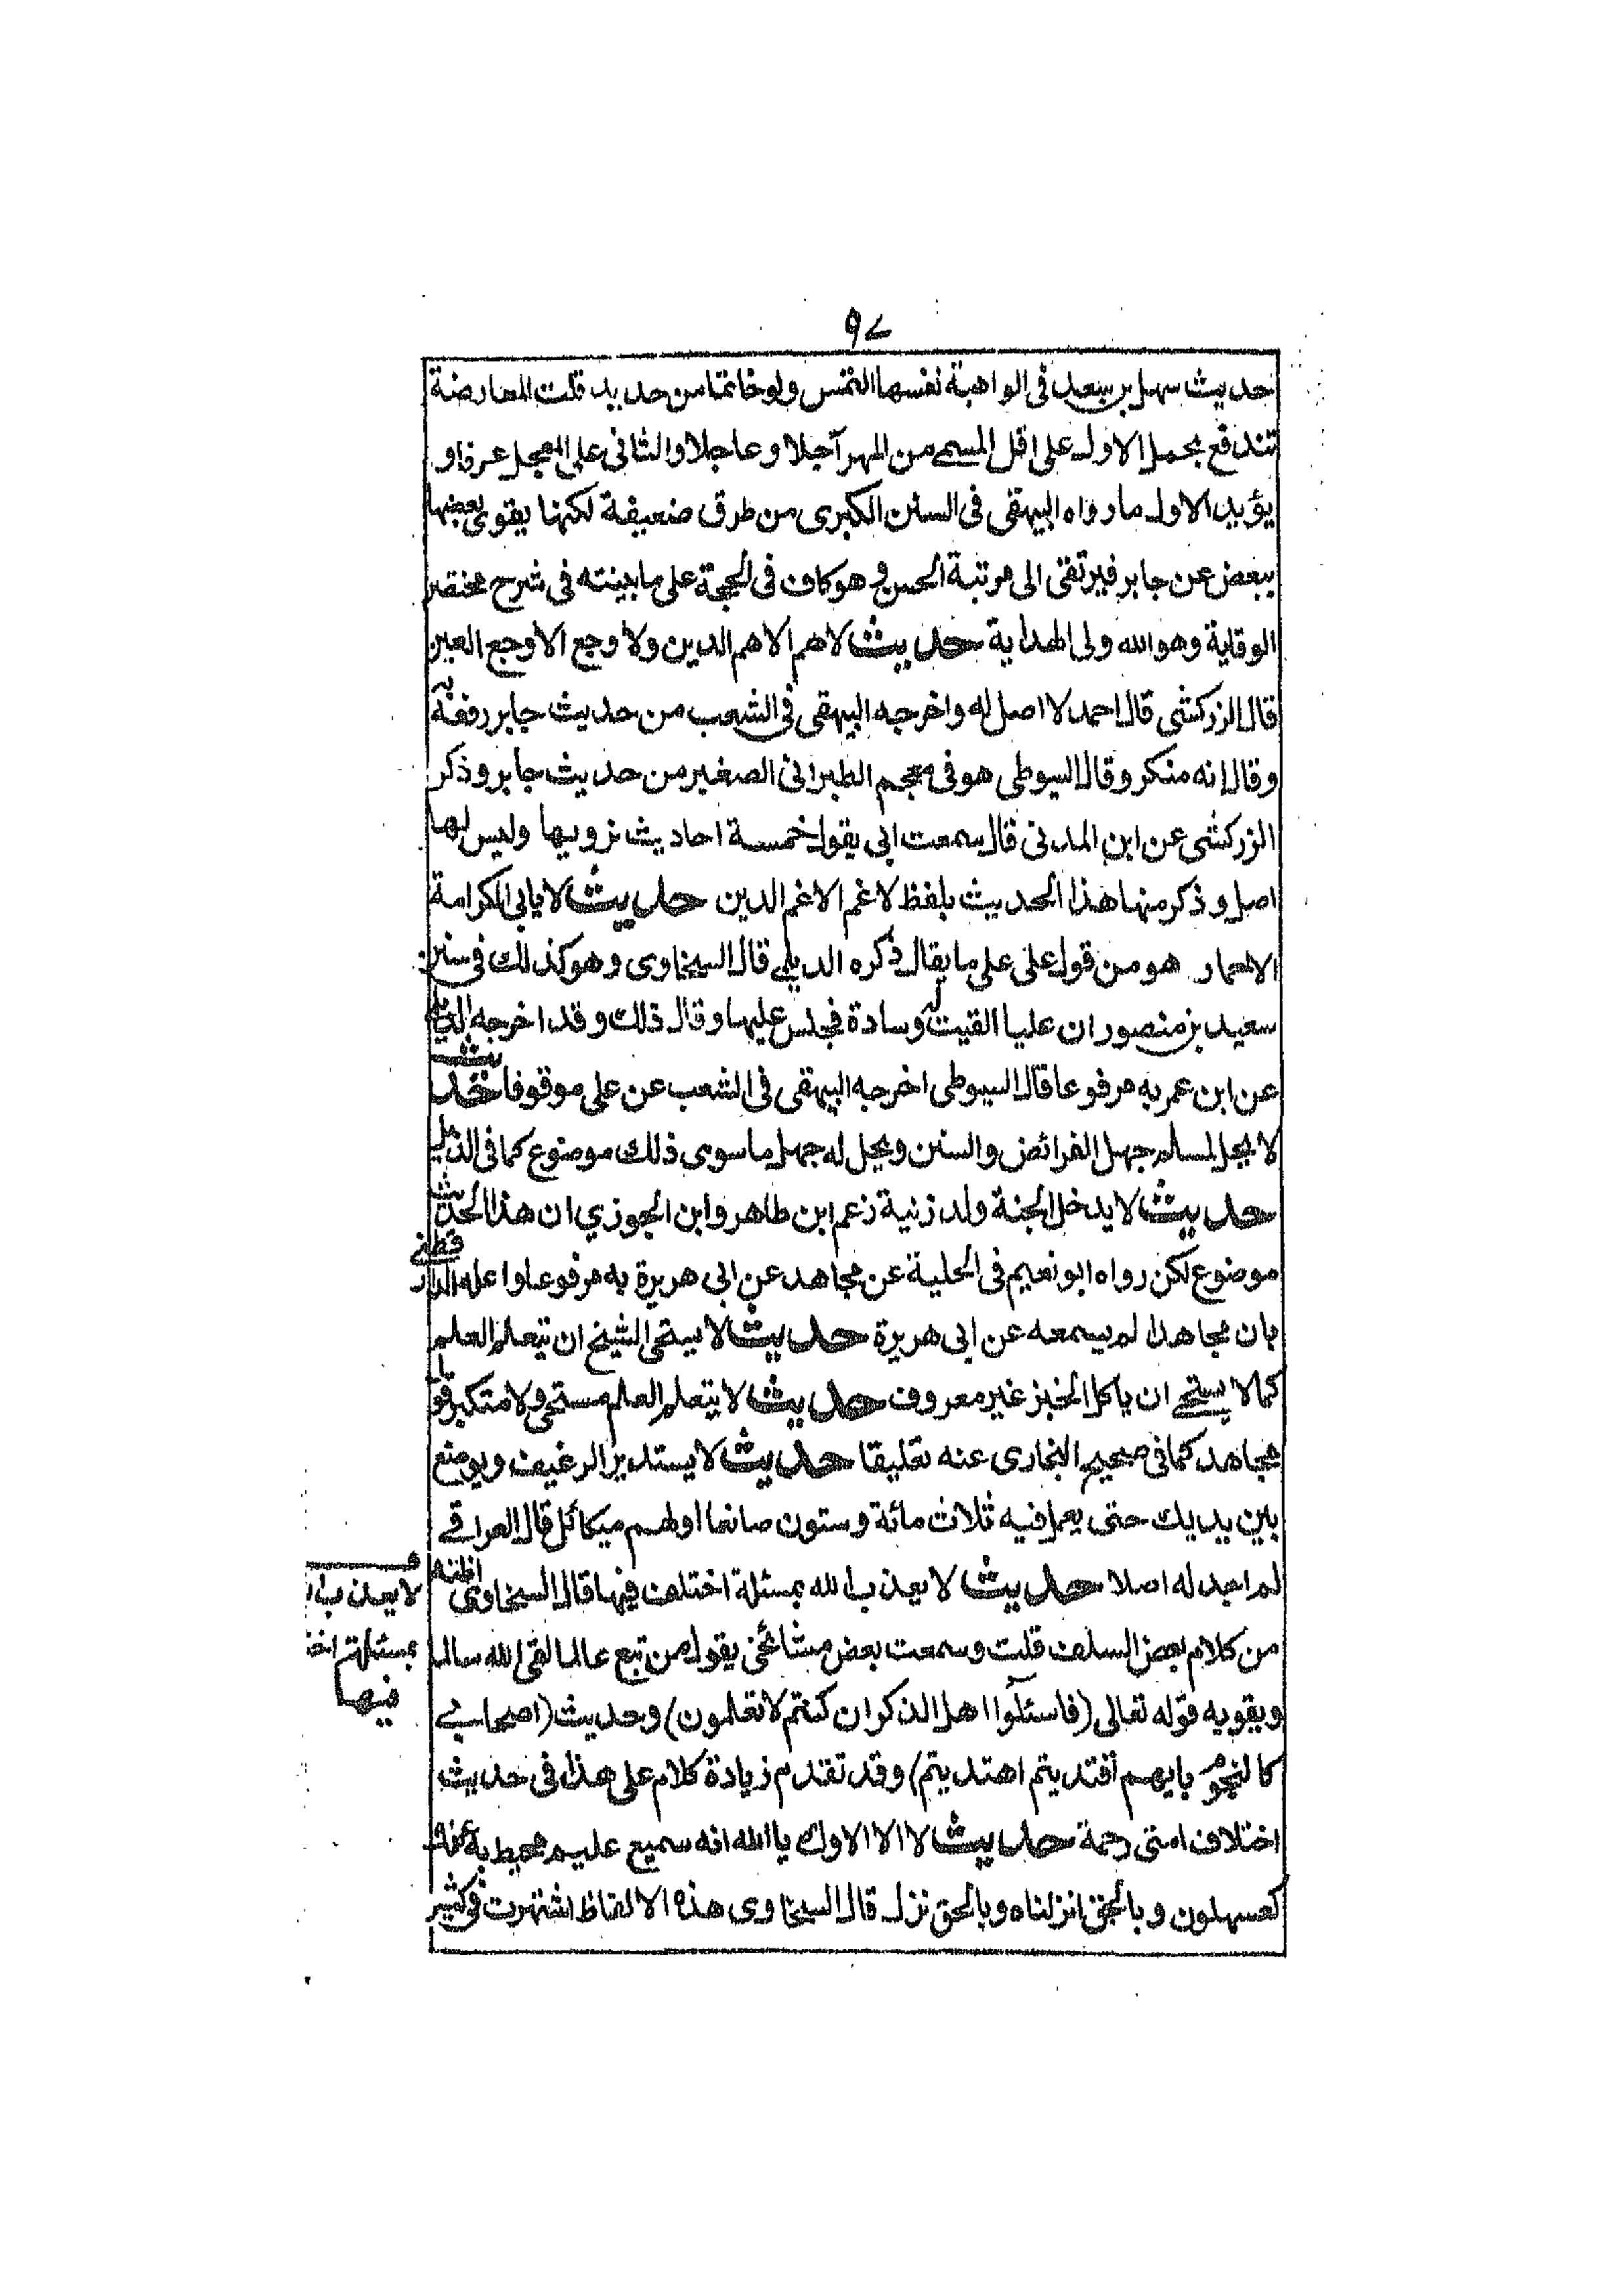 ۹۷
حديث سهل بن سعد فى الواهبة نفسها التمس ولو خاتما من حديد قلت المعارضة
تندفع بحمل الاول على اقل المسمى من المهر آجلا وعاجلا والثانى على المعجل عرفا و
يؤيد الاول ما رواه البيهقى فى السنن الكبرى من طرق ضعيفة لكنها يقوى بعضها
ببعض عن جابر فيرتقى الى مرتبة الحسن وهو كاف فى الحجة على ما بينته فى شرح مختصر
الوقاية وهو الله ولى الهداية حديث لا هم الا هم الدين ولا وجع الا وجع العين
قال الزركشى قال احمد لا اصل له واخرجه البيهقى فى الشعب من حديث جابر رفعه به
وقال انه منكر وقال السيوطى هو فى معجم الطبرانى الصغير من حديث جابر وذكر
الزركشى عن ابن المدنى قال سمعت ابى يقول خمسة احاديث نرويها وليس لها
اصل وذكر منها هذا الحديث بلفظ لا غم الا غم الدين حديث لا يابى الكرامة
الا حمار هو من قول على على ما يقال ذكره الديلمى قال السخاوى وهو كذلك فى سنن
سعيد بن منصور ان عليا القيت له وسادة فجلس عليها وقال ذلك وقد اخرجه الديلمى
عن ابن عمر به مرفوعا قال السيوطى اخرجه البيهقى فى الشعب عن على موقوفا حديث
لا يحل لمسلم جهل الفرائض والسنن ويحل له جهل ما سوى ذلك موضوع كما فى الذيل
حديث لا يدخل الجنة ولد زنية زعم ابن طاهر وابن الجوزي ان هذا الحديث
موضوع لكن رواه ابو نعيم فى الحلية عن مجاهد عن ابى هريرة به مرفوعا واعله الدارقطنى
بان مجاهدا لم يسمعه عن ابى هريرة حديث لا يستحى الشيخ ان يتعلم العلم
كما لا يستحى ان ياكل الخبز غير معروف حديث لا يتعلم العلم مستحى ولا متكبر قول
مجاهد كما فى صحيح البخارى عنه تعليقا حديث لا يستدير الرغيف ويوضع
بين يديك حتى يعمل فيه ثلاث مائة وستون صانعا اولهم ميكائل قال العراقى
لم اجد له اصلا حديث لا يعذب الله بمسئلة اختلف فيها قال السخاوى اظنه
من كلام بعض السلف قلت وسمعت بعض مشائخى يقول من تبع عالما لقى الله سالما
ويقويه قوله تعالى (فاسئلوا اهل الذكر ان كنتم لا تعلمون) وحديث (اصحابى
كالنجوم بايهم اقتديتم اهتديتم) وقد تقدم زيادة كلام على هذا فى حديث
اختلاف امتى رحمة حديث لا الا الا الاوك يا الله انه سميع عليم محيط به علمك
كعسهلون وبالحق انزلناه وبالحق نزل قال السخاوى هذه الالفاظ اشتهرت فى كثير
لا يعذب
بمسئلة
فيها